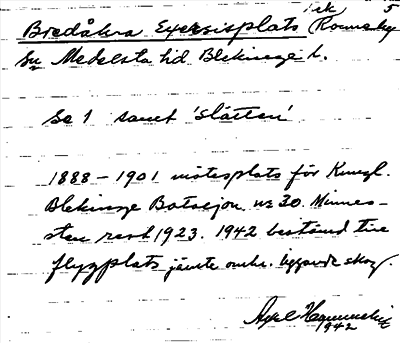 i ek 5
Bredåkra Exersisplats (Ronneby
Sn Medelsta hd Blekinge l.
Se 1 samt 'slätten'
1888 – 1901 mötesplats för Kungl.
Blekinge Bataljon nr 30. Minnes-
sten rest 1923. 1942 bestämd till
flygplats jämte omkr. liggande skog.
Axel
1942